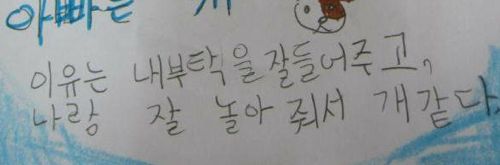 아빠는 개
이유는 내부탁을잘들어주고,
나랑 잘 놀아 줘서 개같다.